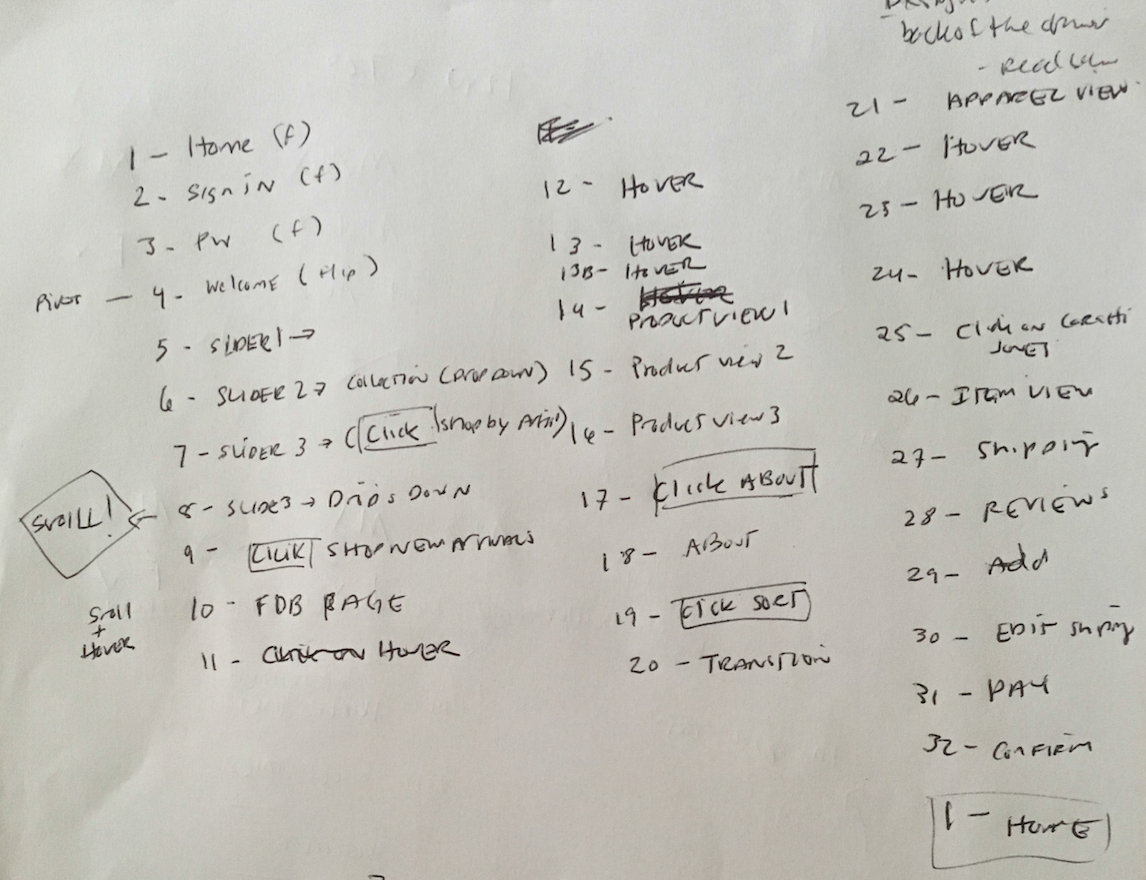 1 - Home (f)
2 - Sign in (f)
3 - PW (f)
4 - Welcome (flip)
5 - SLIDER 1 →
6 - SLIDER 2 → Collection (Drop down)
7 - SLIDER 3 → (Click shop by Artist)
8 - SLIDE 3 → Drops Down
9 - CLICK SHOP NEW ARRIVALS
10 - FDB PAGE
scroll
+
Hover
11 - HOVER
12 - HOVER
13 - HOVER
13B - HOVER
14 -
PRODUCT VIEW 1
15 - Product view 2
16 - Product view 3
17 - Click ABOUT
18 - ABOUT
19 - Click SORT
20 - TRANSITION
back of the
21 - APPAREL VIEW
22 - HOVER
23 - HOVER
24 - HOVER
25 - Click on
26 - ITEM VIEW
27 - Shipping
28 - REVIEWS
29 - Add
30 - EDIT
31 - PAY
32 - CONFIRM
1 - HOME